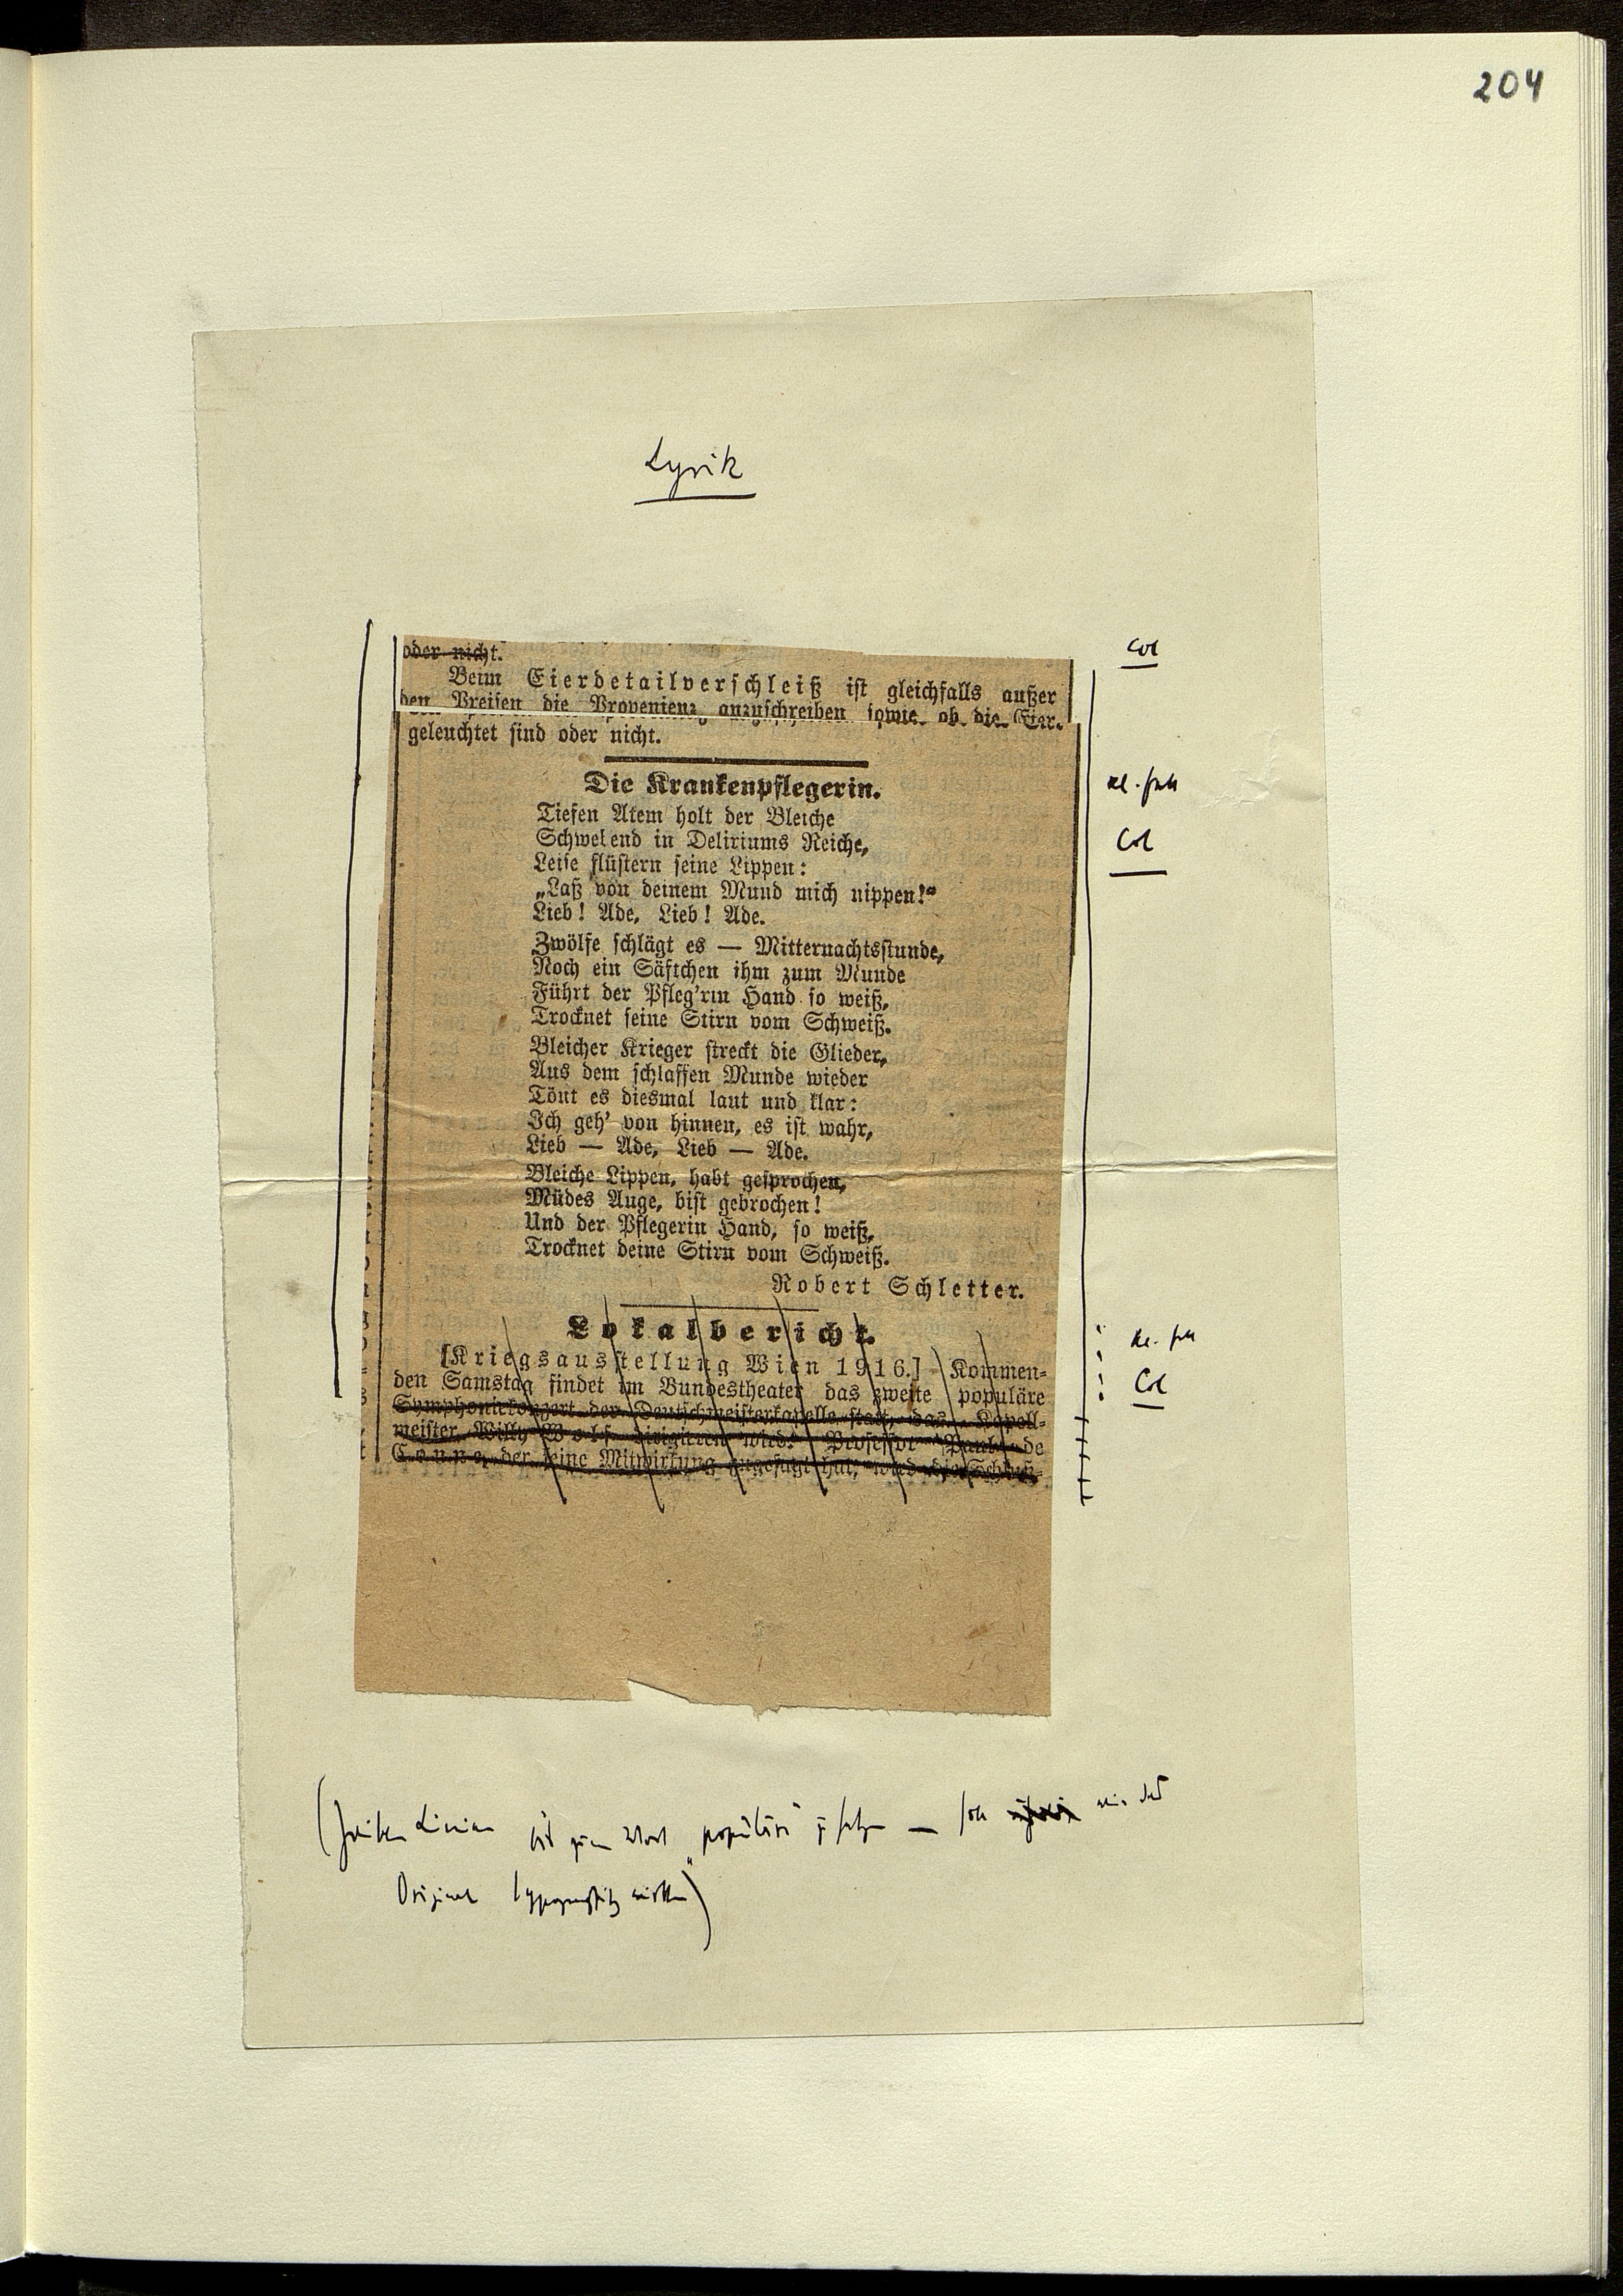 204
Lyrik
oder nicht.
Beim Eierdetailverschleiß ist gleichfalls außer
den Preisen die Provenienz anzuschreiben sowie, ob die Eier
geleuchtet sind oder nicht.
Die Krankenpflegerin.
Tiefen Atem holt der Bleiche
Schwelend in Deliriums Reiche,
Leise flüstern seine Lippen:
„Laß von deinem Mund mich nippen!“
Lieb! Ade, Lieb! Ade.
Zwölfe schlägt es — Mitternachtsstunde,
Noch ein Säftchen ihm zum Munde
Führt der Pfleg'rin Hand so weiß,
Trocknet seine Stirn vom Schweiß.
Bleicher Krieger streckt die Glieder,
Aus dem schlaffen Munde wieder
Tönt es diesmal laut und klar:
Ich geh' von hinnen, es ist wahr,
Lieb — Ade, Lieb — Ade.
Bleiche Lippen, habt gesprochen,
Müdes Auge, bist gebrochen!
Und der Pflegerin Hand, so weiß,
Trocknet deine Stirn vom Schweiß.
Robert Schletter.
Lokalbericht.
[Kriegsausstellung Wien 1916.] Kommen-
den Samstag findet im Bundestheater das zweite populäre
Symphoniekonzert der Deutschmeisterkapelle statt, das Kapell-
meister Willy Wolf dirigieren wird. Professor Paul de
Conne, der seine Mitwirkung zugesagt hat, wird die Schluß-
Col
Col
Col
(zwischen Linien bis zum Wort „populäre“ zu setzen — soll wie das
Original typographisch wirken)